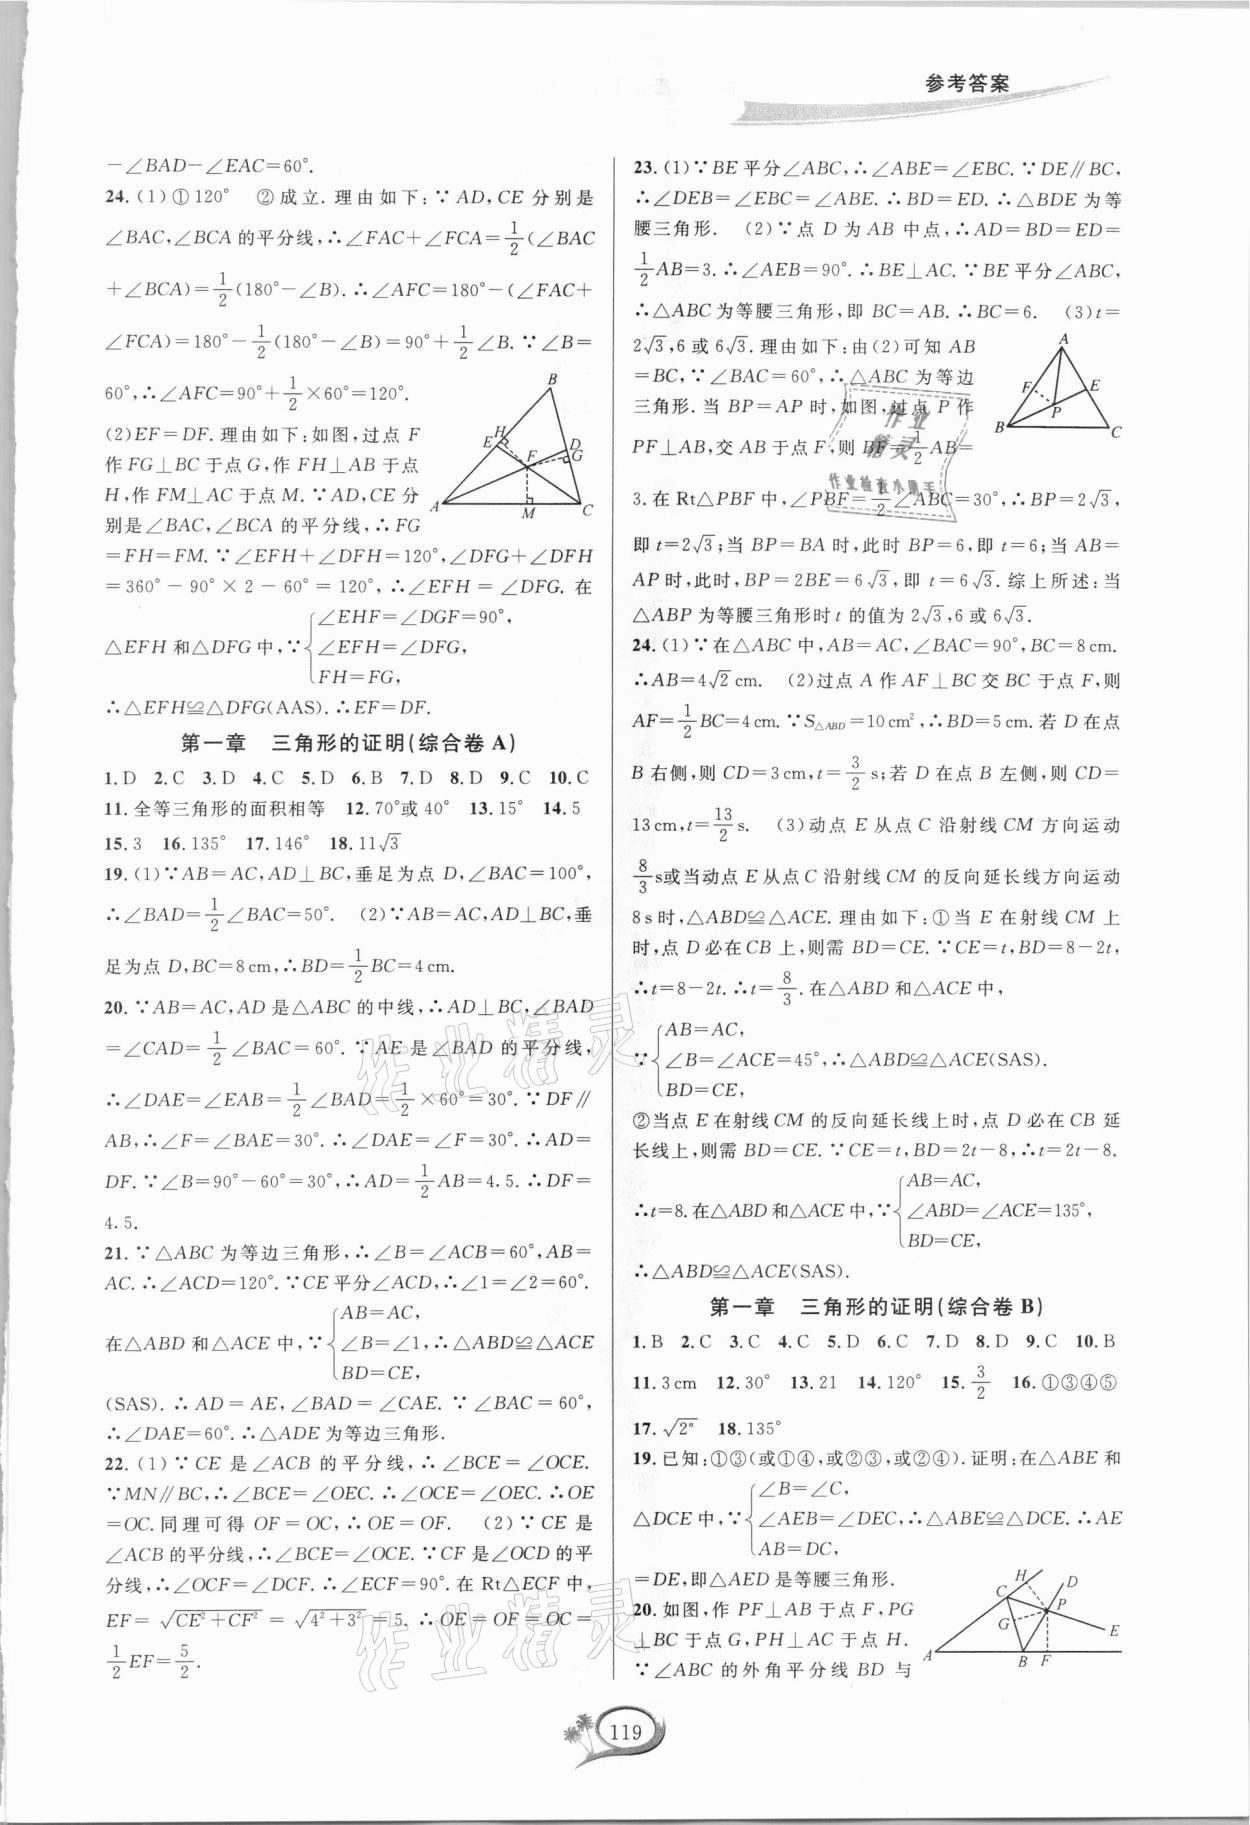 参考答案
－∠BAD－∠EAC＝60°.
24.(1)①120°　②成立.理由如下:∵AD,CE 分别是
∠BAC,∠BCA 的平分线,∴∠FAC＋∠FCA＝1/2(∠BAC
＋∠BCA)＝1/2(180°－∠B).∴∠AFC＝180°－(∠FAC＋
∠FCA)＝180°－1/2(180°－∠B)＝90°＋1/2∠B.∵∠B＝
60°,∴∠AFC＝90°＋1/2×60°＝120°.
(2)EF＝DF.理由如下:如图,过点 F
作 FG⊥BC 于点 G,作 FH⊥AB 于点
H,作 FM⊥AC 于点 M.∵AD,CE 分
别是∠BAC,∠BCA 的平分线,∴FG
＝FH＝FM.∵∠EFH＋∠DFH＝120°,∠DFG＋∠DFH
＝360°－90°×2－60°＝120°,∴∠EFH＝∠DFG.在
△EFH 和△DFG 中,∵{∠EHF＝∠DGF＝90°,
∠EFH＝∠DFG,
FH＝FG,
∴△EFH≌△DFG(AAS).∴EF＝DF.
B
H
E
D
F
G
A
M
C
第一章　三角形的证明(综合卷 A)
1.D　2.C　3.D　4.C　5.D　6.B　7.D　8.D　9.C　10.C
11.全等三角形的面积相等　12.70°或 40°　13.15°　14.5
15.3　16.135°　17.146°　18.11√3
19.(1)∵AB＝AC,AD⊥BC,垂足为点 D,∠BAC＝100°,
∴∠BAD＝1/2∠BAC＝50°.　(2)∵AB＝AC,AD⊥BC,垂
足为点 D,BC＝8 cm,∴BD＝1/2BC＝4 cm.
20.∵AB＝AC,AD 是△ABC 的中线,∴AD⊥BC,∠BAD
＝∠CAD＝1/2∠BAC＝60°.∵AE 是∠BAD 的平分线,
∴∠DAE＝∠EAB＝1/2∠BAD＝1/2×60°＝30°.∵DF∥
AB,∴∠F＝∠BAE＝30°.∴∠DAE＝∠F＝30°.∴AD＝
DF.∵∠B＝90°－60°＝30°,∴AD＝1/2AB＝4.5.∴DF＝
4.5.
21.∵△ABC 为等边三角形,∴∠B＝∠ACB＝60°,AB＝
AC.∴∠ACD＝120°.∵CE 平分∠ACD,∴∠1＝∠2＝60°.
在△ABD 和△ACE 中,∵{AB＝AC,
∠B＝∠1,∴△ABD≌△ACE
BD＝CE,
(SAS).∴AD＝AE,∠BAD＝∠CAE.∵∠BAC＝60°,
∴∠DAE＝60°.∴△ADE 为等边三角形.
22.(1)∵CE 是∠ACB 的平分线,∴∠BCE＝∠OCE.
∵MN∥BC,∴∠BCE＝∠OEC.∴∠OCE＝∠OEC.∴OE
＝OC.同理可得 OF＝OC,∴OE＝OF.　(2)∵CE 是
∠ACB 的平分线,∴∠BCE＝∠OCE.∵CF 是∠OCD 的平
分线,∴∠OCF＝∠DCF.∴∠ECF＝90°.在 Rt△ECF 中,
EF＝√(CE²＋CF²)＝√(4²＋3²)＝5.∴OE＝OF＝OC＝
1/2EF＝5/2.
23.(1)∵BE 平分∠ABC,∴∠ABE＝∠EBC.∵DE∥BC,
∴∠DEB＝∠EBC＝∠ABE.∴BD＝ED.∴△BDE 为等
腰三角形.　(2)∵点 D 为 AB 中点,∴AD＝BD＝ED＝
1/2AB＝3.∴∠AEB＝90°.∴BE⊥AC.∵BE 平分∠ABC,
∴△ABC 为等腰三角形,即 BC＝AB.∴BC＝6.　(3)t＝
2√3,6 或 6√3.理由如下:由(2)可知 AB
＝BC,∵∠BAC＝60°,∴△ABC 为等边
三角形.当 BP＝AP 时,如图,过点 P 作
PF⊥AB,交 AB 于点 F,则 BF＝1/2AB＝
3.在 Rt△PBF 中,∠PBF＝1/2∠ABC＝30°,∴BP＝2√3,
即 t＝2√3;当 BP＝BA 时,此时 BP＝6,即 t＝6;当 AB＝
AP 时,此时,BP＝2BE＝6√3,即 t＝6√3.综上所述:当
△ABP 为等腰三角形时 t 的值为 2√3,6 或 6√3.
A
F
E
P
B
C
24.(1)∵在△ABC 中,AB＝AC,∠BAC＝90°,BC＝8 cm.
∴AB＝4√2 cm.　(2)过点 A 作 AF⊥BC 交 BC 于点 F,则
AF＝1/2BC＝4 cm.∵S△ABD＝10 cm²,∴BD＝5 cm.若 D 在点
B 右侧,则 CD＝3 cm,t＝3/2 s;若 D 在点 B 左侧,则 CD＝
13 cm,t＝13/2 s.　(3)动点 E 从点 C 沿射线 CM 方向运动
8/3 s或当动点 E 从点 C 沿射线 CM 的反向延长线方向运动
8 s时,△ABD≌△ACE.理由如下:①当 E 在射线 CM 上
时,点 D 必在 CB 上,则需 BD＝CE.∵CE＝t,BD＝8－2t,
∴t＝8－2t.∴t＝8/3.在△ABD 和△ACE 中,
∵{AB＝AC,
∠B＝∠ACE＝45°,∴△ABD≌△ACE(SAS).
BD＝CE,
②当点 E 在射线 CM 的反向延长线上时,点 D 必在 CB 延
长线上,则需 BD＝CE.∵CE＝t,BD＝2t－8,∴t＝2t－8.
∴t＝8.在△ABD 和△ACE 中,∵{AB＝AC,
∠ABD＝∠ACE＝135°,
BD＝CE,
∴△ABD≌△ACE(SAS).
第一章　三角形的证明(综合卷 B)
1.B　2.C　3.C　4.C　5.D　6.C　7.D　8.D　9.C　10.B
11.3 cm　12.30°　13.21　14.120°　15.3/2　16.①③④⑤
17.√2ⁿ　18.135°
19.已知:①③(或①④,或②③,或②④).证明:在△ABE 和
△DCE 中,∵{∠B＝∠C,
∠AEB＝∠DEC,∴△ABE≌△DCE.∴AE
AB＝DC,
＝DE,即△AED 是等腰三角形.
20.如图,作 PF⊥AB 于点 F,PG
⊥BC 于点 G,PH⊥AC 于点 H.
∵∠ABC 的外角平分线 BD 与
H
D
C
P
G
E
A
B
F
119
作业精灵
作业检查小助手
作业精灵
作业精灵